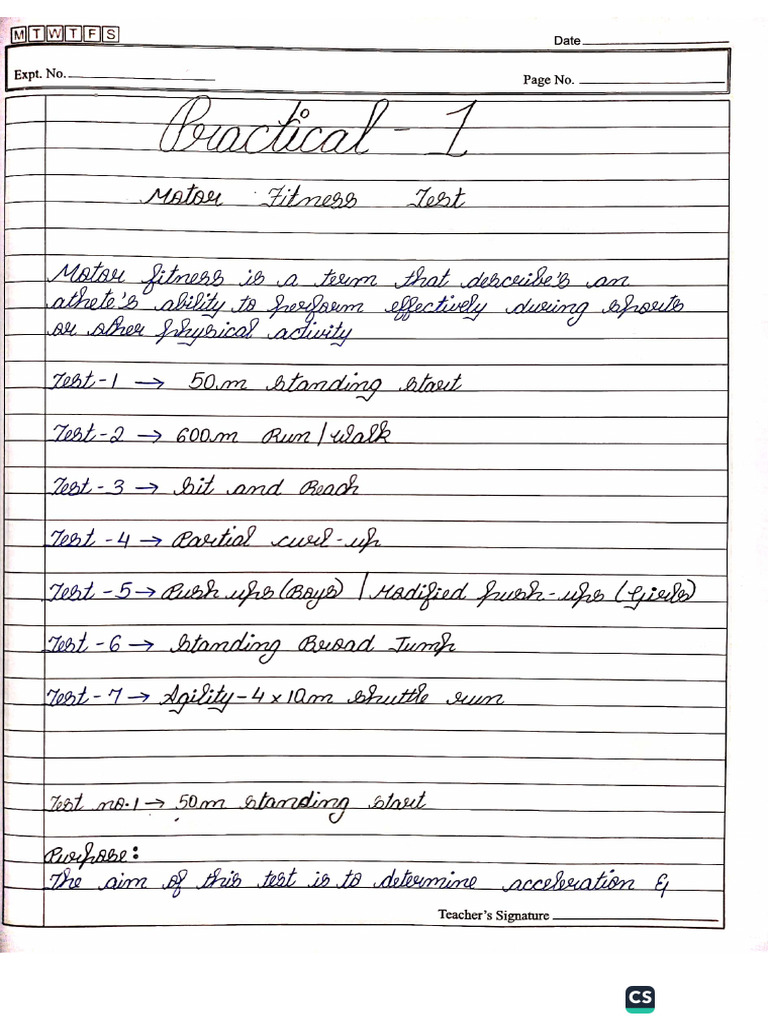 M T W T F S
Date
Expt. No.
Page No.
Practical - 1
Motor Fitness Test
Motor fitness is a term that describe's an
athete's ability to perform effectively during sports
or other physical activity
Test-1 → 50.m standing start
Test-2 → 600.m Run / Walk
Test-3 → Sit and Reach
Test-4 → Partial curl-up
Test-5 → Push ups (Boys) / Modified push-ups (Girls)
Test-6 → Standing Broad Jump
Test-7 → Agility-4 x 10.m shuttle run
Test no.1 → 50m standing start
Purpose:
The aim of this test is to determine acceleration &
Teacher's Signature
CS